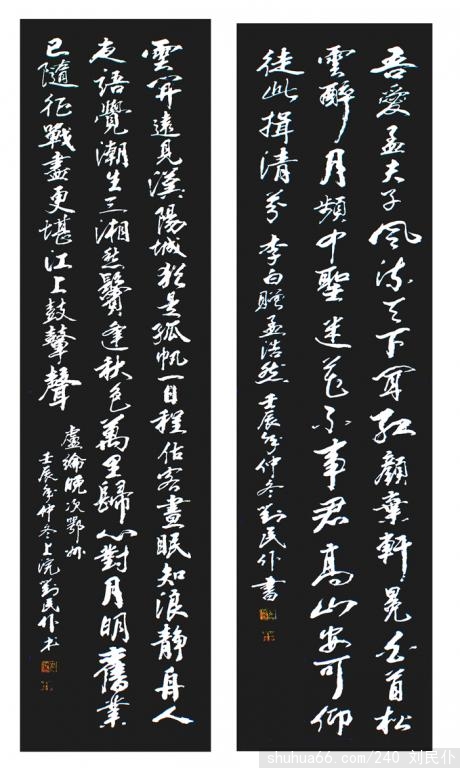 吾愛孟夫子風流天下聞紅顏棄軒冕白首松
雲醉月頻中聖迷花不事君高山安可仰
徒此揖清芬 李白贈孟浩然 壬辰年仲冬劉民仆書
雲開遠見漢陽城猶是孤帆一日程估客晝眠知浪靜舟人
夜語覺潮生三湘愁鬢逢秋色萬里歸心對月明舊業
已隨征戰盡更堪江上鼓鼙聲
盧綸晚次鄂州
壬辰年仲冬上浣劉民仆书
shuhua66.com/240 刘民仆